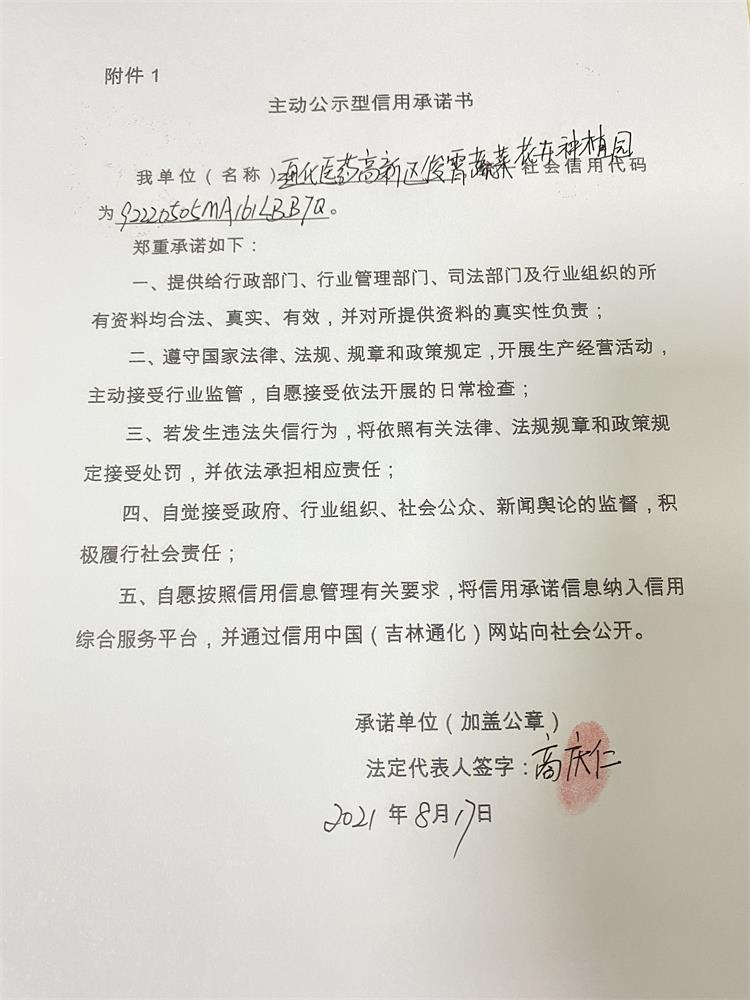 附件 1
主动公示型信用承诺书
我单位（名称）通化医药高新区俊霄蔬菜花卉种植园社会信用代码
为92220505MA161LBB7Q。
郑重承诺如下：
一、提供给行政部门、行业管理部门、司法部门及行业组织的所
有资料均合法、真实、有效，并对所提供资料的真实性负责；
二、遵守国家法律、法规、规章和政策规定，开展生产经营活动，
主动接受行业监管，自愿接受依法开展的日常检查；
三、若发生违法失信行为，将依照有关法律、法规规章和政策规
定接受处罚，并依法承担相应责任；
四、自觉接受政府、行业组织、社会公众、新闻舆论的监督，积
极履行社会责任；
五、自愿按照信用信息管理有关要求，将信用承诺信息纳入信用
综合服务平台，并通过信用中国（吉林通化）网站向社会公开。
承诺单位（加盖公章）
法定代表人签字：高庆仁
2021 年 8月17日